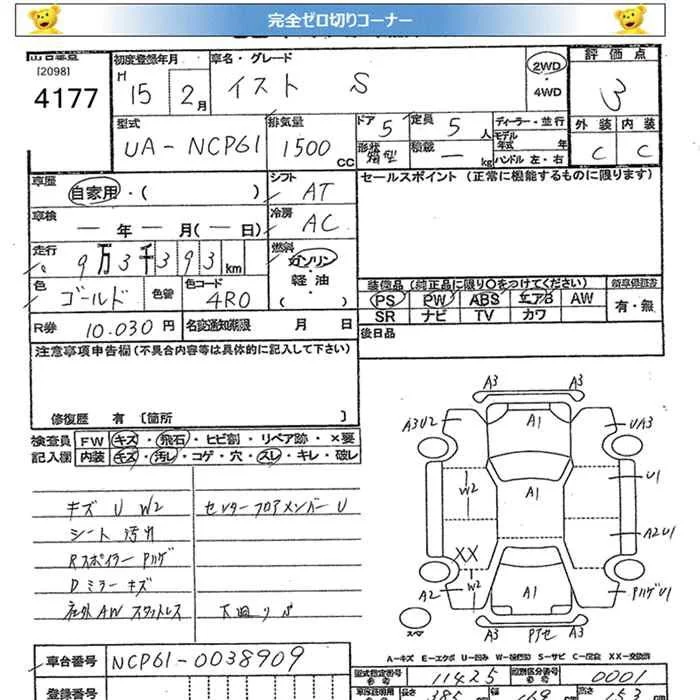 完全ゼロ切りコーナー
出品番号
[2098]
4177
初度登録年月
H 15 2月
車名・グレード
イスト S
2WD
・4WD
評価点
3
外装 内装
C C
型式
UA-NCP61
排気量
1500 CC
ドア 5
形状 箱型
定員 5 人
積載 — kg
ディーラー・並行
モデル年式 年
ハンドル 左・右
車歴
自家用・( )
シフト
AT
セールスポイント (正常に機能するものに限ります)
車検
— 年 — 月(— 日)
冷房
AC
走行
9万3千393km
燃料
ガソリン・軽油
( )
色
ゴールド
色替
色コード
4R0
装備品 (純正品に限り○をつけてください)
PS PW ABS エアB AW
SR ナビ TV カワ
新車保証書
有・無
R券 10.030円
名変通知期限 月 日
後日品
注意事項申告欄 (不具合内容等は具体的に記入して下さい)
修復歴 有 〔箇所 〕
検査員記入欄
FW キズ・飛石・ヒビ割・リペア跡・×要
内装 キズ・汚レ・コゲ・穴・スレ・キレ・破レ
キズ U W2
シート 汚れ
Rスポイラー Pハゲ
Dミラー キズ
社外AW スタットレス
センターフロアメンバー U
下回り S
A3 A3
A3U2 A1 UA3
W2 A1 U1
A2U1
XX
A2 W2 A1 PハゲU1
スペア
A3 Pヌセ A3
A-キズ E-エクボ U-凹み W-補修跡 S-サビ C-腐食 XX-交換済
車台番号
NCP61-0038909
型式指定番号 11425
類別区分番号 0001
登録番号
長さ 385 幅 169 高さ 153